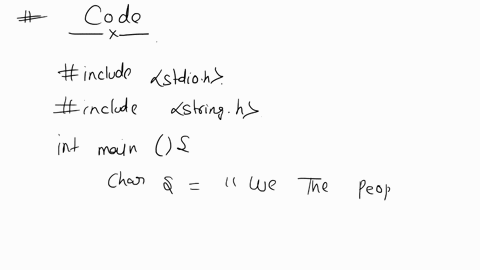 # Code
#include <stdio.h>
#include <string.h>
int main () {
Char S = " We The Peop